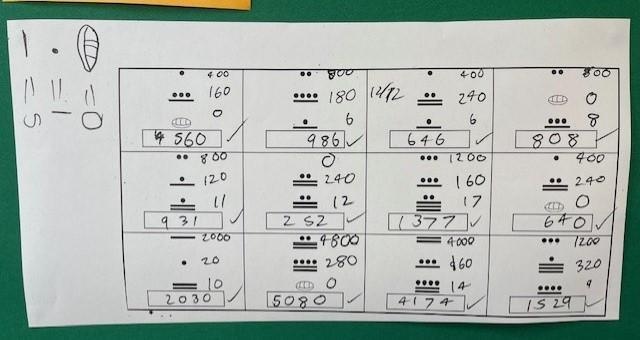 = 5
= 1
= 0
400
160
0
560
800
180
6
986
12/12
400
240
6
646
800
0
8
808
800
120
11
931
0
240
12
252
1200
160
17
1377
400
240
0
640
2000
20
10
2030
4800
280
0
5080
4000
160
14
4174
1200
320
9
1529